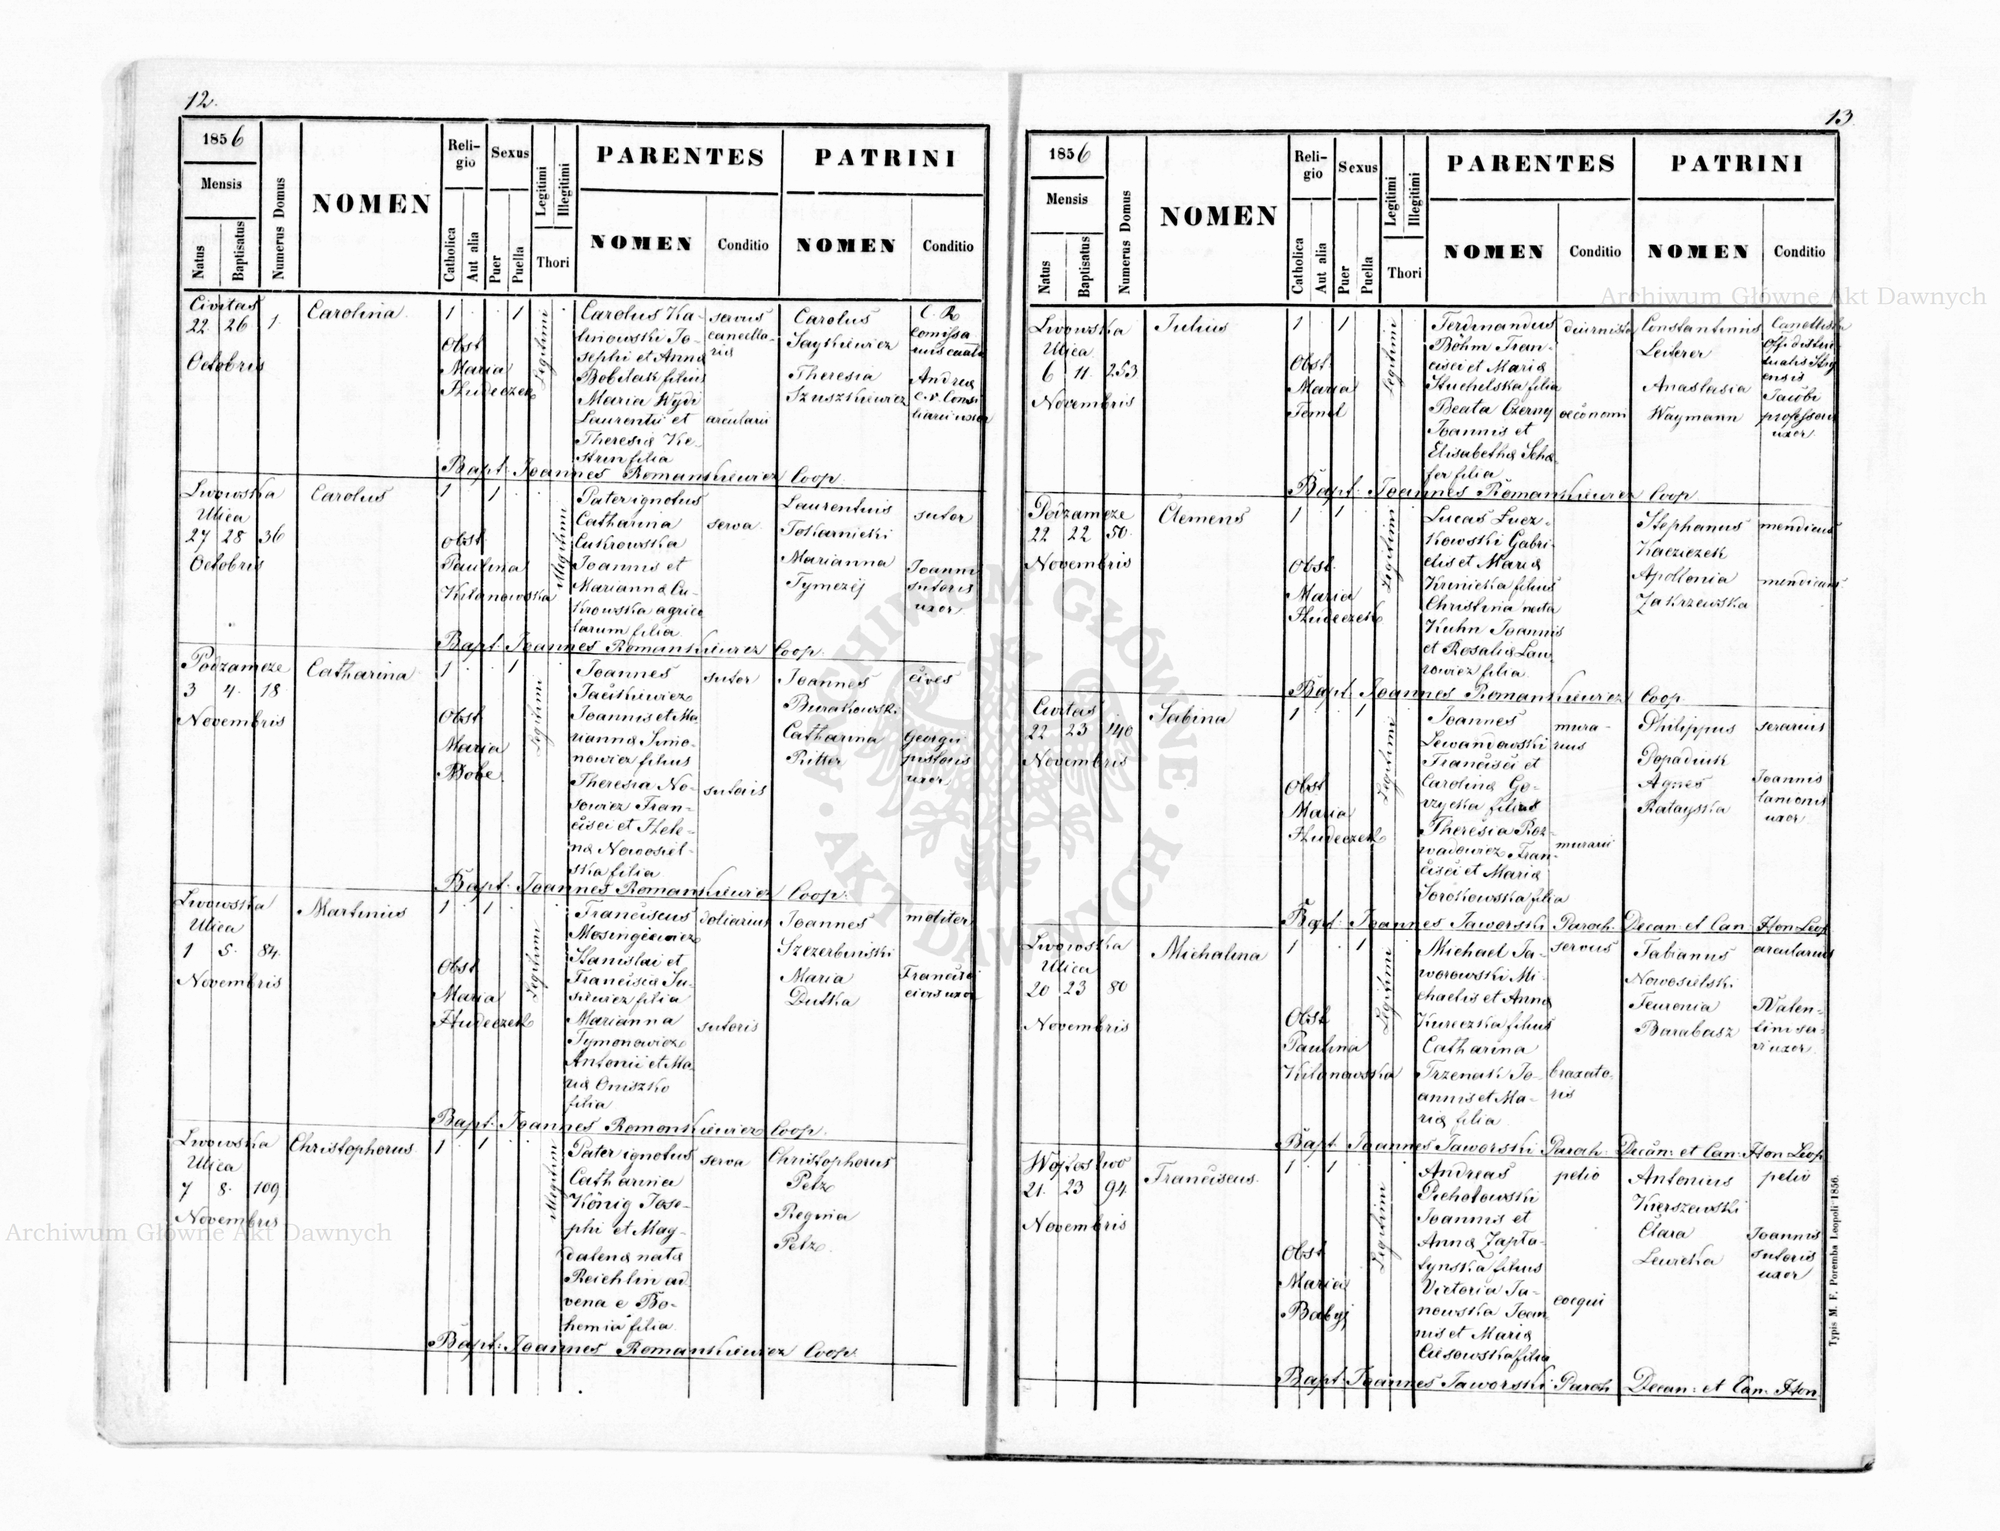 12.
1856
Mensis
Natus
Baptisatus
Numerus Domus
NOMEN
Reli-
gio
Catholica
Aut alia
Sexus
Puer
Puella
Legitimi
Illegitimi
Thori
PARENTES
NOMEN
Conditio
PATRINI
NOMEN
Conditio
Civitas
22 26 1.
Octobris
Carolina
1 1
Obst
Maria
Hudeczek
Legitimi
Carolus Ka-
linowski Jo-
sephi et Anna
Bobitak filius
Maria Wydr
Laurentii et
Theresia Ke-
strin filia
servus
cancella-
ria
arcularii
Carolus
Saytkiewicz
Theresia
Szuszkiewicz
C. R.
Andrea
uxor
Bapt: Joannes Romankiewicz Coop.
Lwowska
Ulica
27 28 36
Octobris
Carolus
1 1
obst
Paulina
Kilanowska
Illegitimi
Pater ignotus
Catharina
Cukrowska
Joannis et
Marianna Cu-
krowska agrico
larum filia
serva
Laurentius
Tokarnicki
Marianna
Tymczij
sutor
Joannis
sutoris
uxor
Bapt: Joannes Romankiewicz Coop.
Podzamcze
3 4. 18
Novembris
Catharina
1 1
Obst
Maria
Bobe
Legitimi
Joannes
Jackiewicz
Joannis et Ma
rianna Simo-
nowicz filius
Theresia No-
sowicz Fran-
cisci et Hele-
na Nowosiel-
ska filia
sutor
sutoris
Joannes
Burakowski
Catharina
Ritter
cives
Georgii
pistoris
uxor
Bapt: Joannes Romankiewicz Coop.
Lwowska
Ulica
1 5. 84.
Novembris
Martinus
1 1
Obst
Maria
Hudeczek
Legitimi
Franciscus
Mosingiewicz
Stanislai et
Francisca Su-
siewicz filia
Marianna
Tymonowicz
Antonii et Ma
ria Oniszko
filia
doliarius
sutoris
Joannes
Szczerbinski
Maria
Dutka
molitor
Francisci
civis uxor
Bapt: Joannes Romankiewicz Coop.
Lwowska
Ulica
7 8. 109
Novembris
Christophorus
1 1
Illegitimi
Pater ignotus
Catharina
König Jose-
phi et Mag-
dalena nata
Reichlin ad-
vena e Bo-
hemia filia
serva
Christophorus
Pelz
Regina
Pelz
Bapt: Joannes Romankiewicz Coop.
13.
1856
Mensis
Natus
Baptisatus
Numerus Domus
NOMEN
Reli-
gio
Catholica
Aut alia
Sexus
Puer
Puella
Legitimi
Illegitimi
Thori
PARENTES
NOMEN
Conditio
PATRINI
NOMEN
Conditio
Lwowska
Ulica
6 11. 253
Novembris
Julius
1 1
Obst
Maria
Temel
Legitimi
Ferdinandus
Böhm Fran-
cisci et Maria
Stuchelska filia
Beata Czerny
Joannis et
Elisabetha Scha
fer filia
diurnista
oeconomi
Constantinus
Leiterer
Anastasia
Waymann
Jacobi
professoris
uxor
Bapt: Joannes Romankiewicz Coop.
Podzamcze
22 22 50.
Novembris
Clemens
1 1
Obst
Maria
Hudeczek
Legitimi
Lucas Łucz-
kowski Gabri-
elis et Maria
Krinicka filius
Christina nata
Kuhn Joannis
et Rosalia Law
rowicz filia
Stephanus
Kacziczek
Apollonia
Zakrzewska
mendicus
mendicans
Bapt: Joannes Romankiewicz Coop.
Civitas
22 23 140
Novembris
Sabina
1 1
Obst
Maria
Hudeczek
Legitimi
Joannes
Lewandowski
Francisci et
Carolina Go-
rzycka filius
Theresia Roz-
wadowicz Fran-
cisci et Maria
Sorokowska filia
mura-
rius
murarii
Philippus
Popadiuk
Agnes
Ratayska
serarius
Joannis
lanionis
uxor
Bapt: Joannes Jaworski Paroch: Decan et Can: Hon Leop
Lwowska
Ulica
20 23 80
Novembris
Michalina
1 1
Obst
Paulina
Kilanowska
Legitimi
Michael Ja-
worowski Mi-
chaelis et Anna
Kureczka filius
Catharina
Trzenak Jo-
annis et Ma-
ria filia
servus
braxato-
ris
Fabianus
Nowosielski
Feuronia
Barabasz
arcularius
Valen-
tini ser-
vi uxor
Bapt: Joannes Jaworski Paroch: Decan: et Can: Hon Leop
Wojtostwo
21. 23 94.
Novembris
Franciscus
1 1
Obst
Maria
Babyj
Legitimi
Andreas
Pichotowski
Joannis et
Anna Zapta-
tynska filius
Victoria Ja-
nowska Joan
nis et Maria
Cisowska filia
pelio
cocqui
Antonius
Kierszewski
Clara
Leweka
pelio
Joannis
sutoris
uxor
Bapt: Joannes Jaworski Paroch Decan: et Can: Hon
Typis M. F. Poremba Leopoli 1856.
Archiwum Główne Akt Dawnych
Archiwum Główne Akt Dawnych
ARCHIWUM GŁÓWNE
· AKT DAWNYCH ·